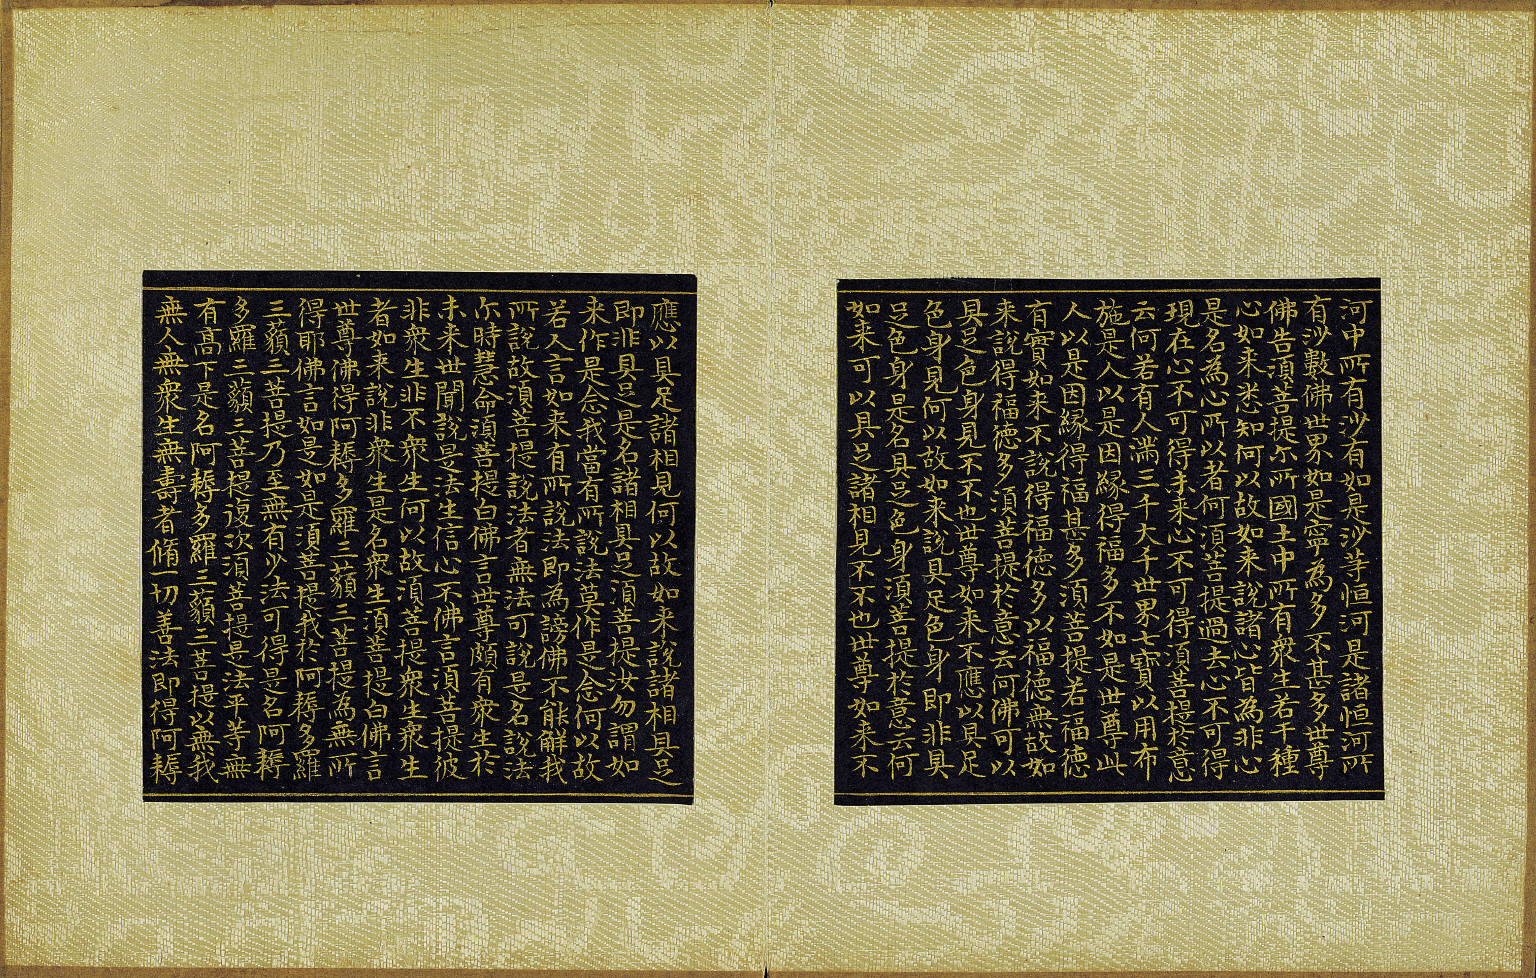 河中所有沙有如是沙等恒河是諸恒河所
有沙數佛世界如是寧為多不甚多世尊
佛告須菩提尒所國土中所有衆生若干種
心如来悉知何以故如来說諸心皆為非心
是名為心所以者何須菩提過去心不可得
現在心不可得未来心不可得須菩提於意
云何若有人滿三千大千世界七寶以用布
施是人以是因緣得福多不如是世尊此
人以是因緣得福甚多須菩提若福德
有實如来不說得福德多以福德無故如
来說得福德多須菩提於意云何佛可以
具足色身見不不也世尊如来不應以具足
色身見何以故如来說具足色身即非具
足色身是名具足色身須菩提於意云何
如来可以具足諸相見不不也世尊如来不
應以具足諸相見何以故如来說諸相具足
即非具足是名諸相具足須菩提汝勿謂如
来作是念我當有所說法莫作是念何以故
若人言如来有所說法即為謗佛不能解我
所說故須菩提說法者無法可說是名說法
尒時慧命須菩提白佛言世尊頗有衆生於
未来世聞說是法生信心不佛言須菩提彼
非衆生非不衆生何以故須菩提衆生衆生
者如来說非衆生是名衆生須菩提白佛言
世尊佛得阿耨多羅三藐三菩提為無所
得耶佛言如是如是須菩提我於阿耨多羅
三藐三菩提乃至無有少法可得是名阿耨
多羅三藐三菩提復次須菩提是法平等無
有高下是名阿耨多羅三藐三菩提以無我
無人無衆生無壽者脩一切善法即得阿耨